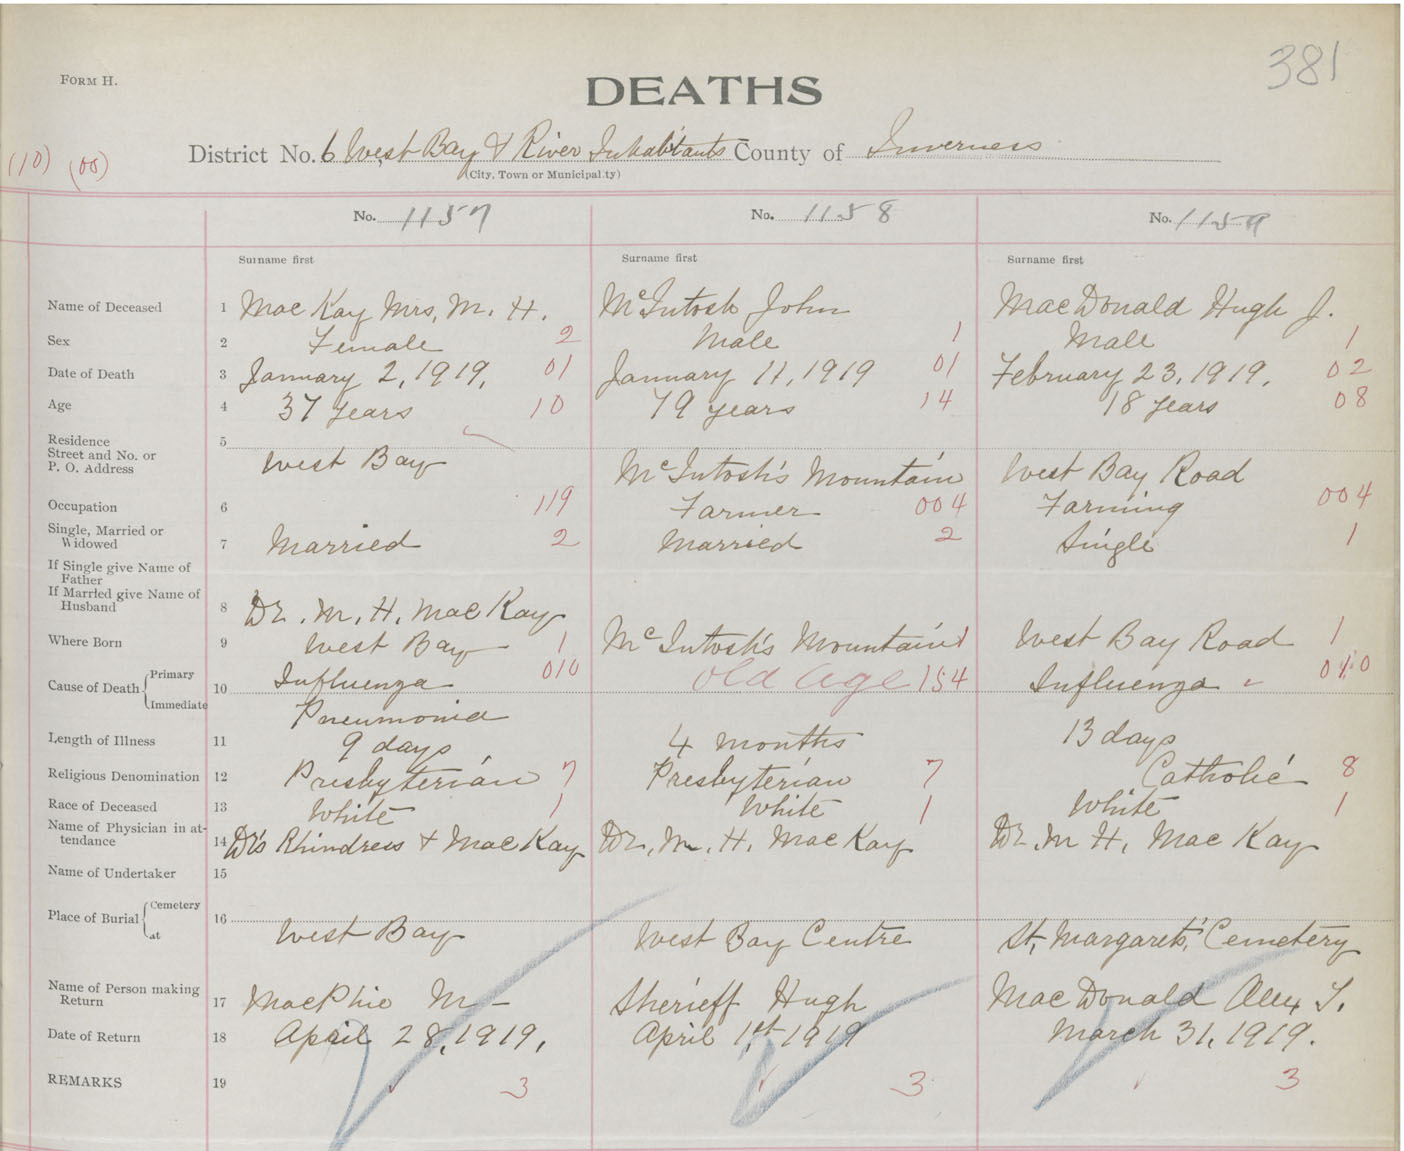 381
FORM H.
DEATHS
District No. 6 West Bay & River Inhabitants County of Inverness
(City, Town or Municipality)
(10) (00)
No. 1157 No. 1158 No. 1159
Surname first Surname first Surname first
Name of Deceased 1 MacKay Mrs, M. H. McIntosh John MacDonald Hugh J.
Sex 2 Female 2 Male 1 Male 1
Date of Death 3 January 2, 1919, 01 January 11, 1919 01 February 23, 1919, 02
Age 4 37 years 10 79 years 14 18 years 08
Residence 5
Street and No. or
P. O. Address West Bay McIntosh's Mountain West Bay Road
Occupation 6 119 Farmer 004 Farming 004
Single, Married or
Widowed 7 Married 2 Married 2 Single 1
If Single give Name of
Father
If Married give Name of
Husband 8 Dr. M. H. MacKay
Where Born 9 West Bay 1 McIntosh's Mountain 1 West Bay Road 1
Cause of Death Primary 10 Influenza 010 Old Age 154 Influenza 010
Immediate Pneumonia
Length of Illness 11 9 days 4 months 13 days
Religious Denomination 12 Presbyterian 7 Presbyterian 7 Catholic 8
Race of Deceased 13 White 1 White 1 White 1
Name of Physician in at-
tendance 14 Dr's Rhindress & MacKay Dr. M. H. MacKay Dr. M H. MacKay
Name of Undertaker 15
Place of Burial Cemetery 16
at West Bay West Bay Centre St, Margaret's, Cemetery
Name of Person making
Return 17 MacPhie M — Sherieff Hugh MacDonald Alex J.
Date of Return 18 April 28, 1919, April 1st 1919 March 31, 1919.
REMARKS 19 3 3 3